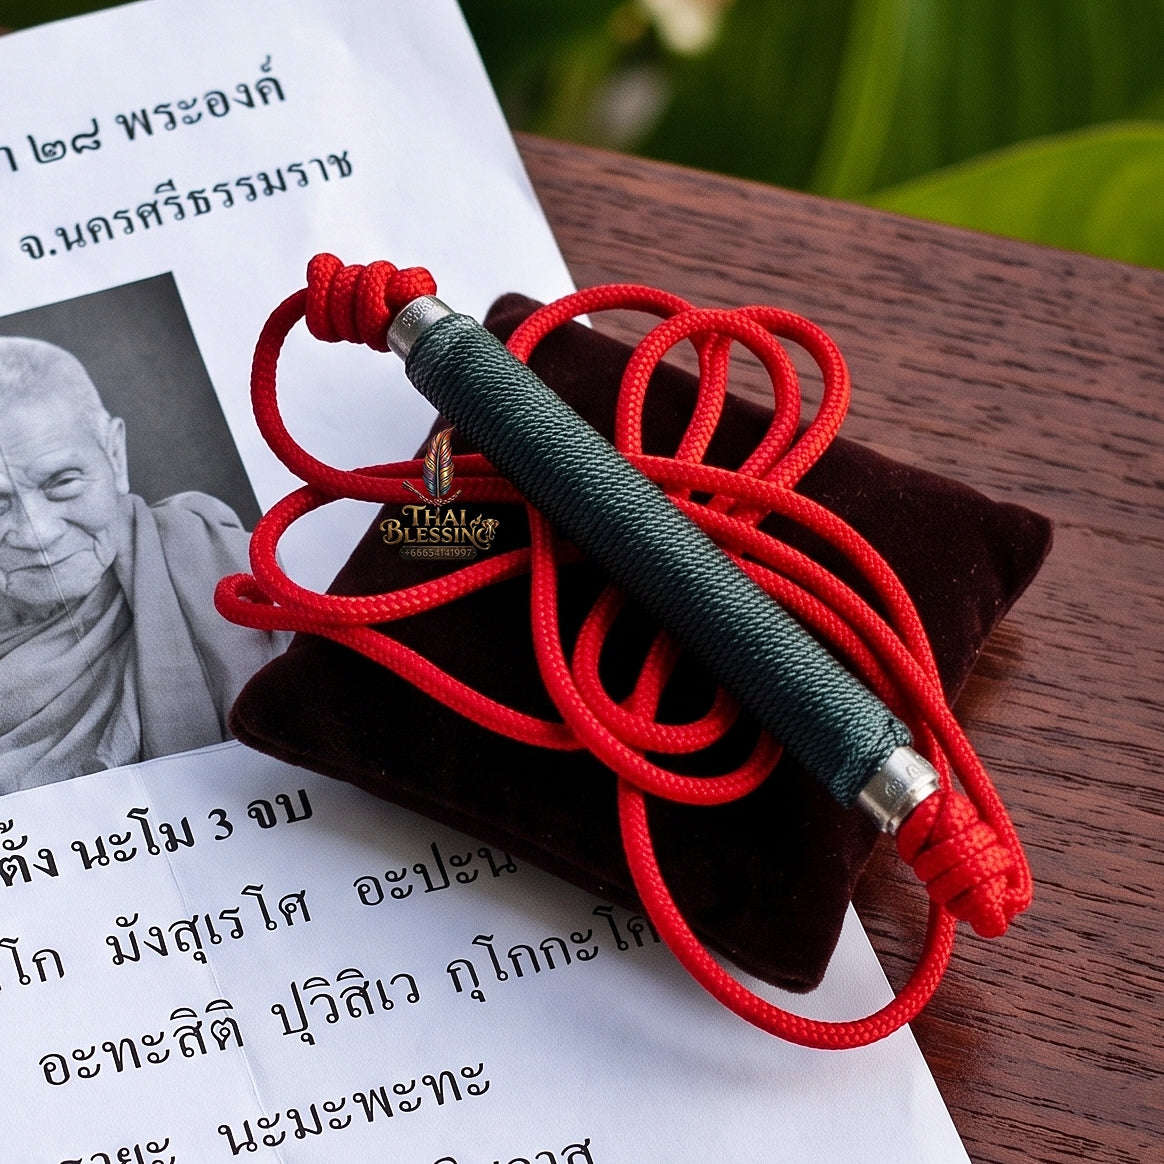 ๒๘ พระองค์
จ.นครศรีธรรมราช
THAI
BLESSING
+66654141997
ตั้ง นะโม 3 จบ
โก มังสุเรโศ อะปะน
อะทะสิติ ปุวิสิเว กุโกกะโค
นะมะพะทะ